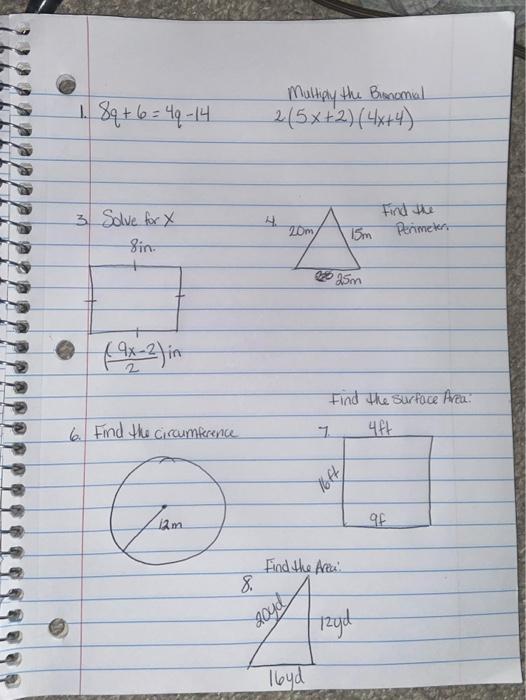 Multiply the Binomial
1. 8q + 6 = 4q - 14
2(5x+2)(4x+4)
3. Solve for X
8in.
(9x-2)in
2
4.
Find the
Perimeter.
20m
15m
25m
6. Find the circumference
12m
Find the Surface Area:
7.
4ft
16ft
9f
Find the Area:
8.
20yd
12yd
16yd